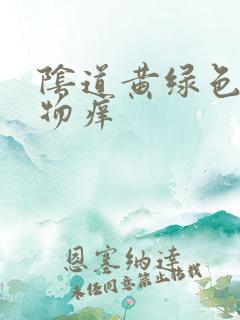 陰道黄绿色
物痒
恩塞纳達
未经同意禁止转载